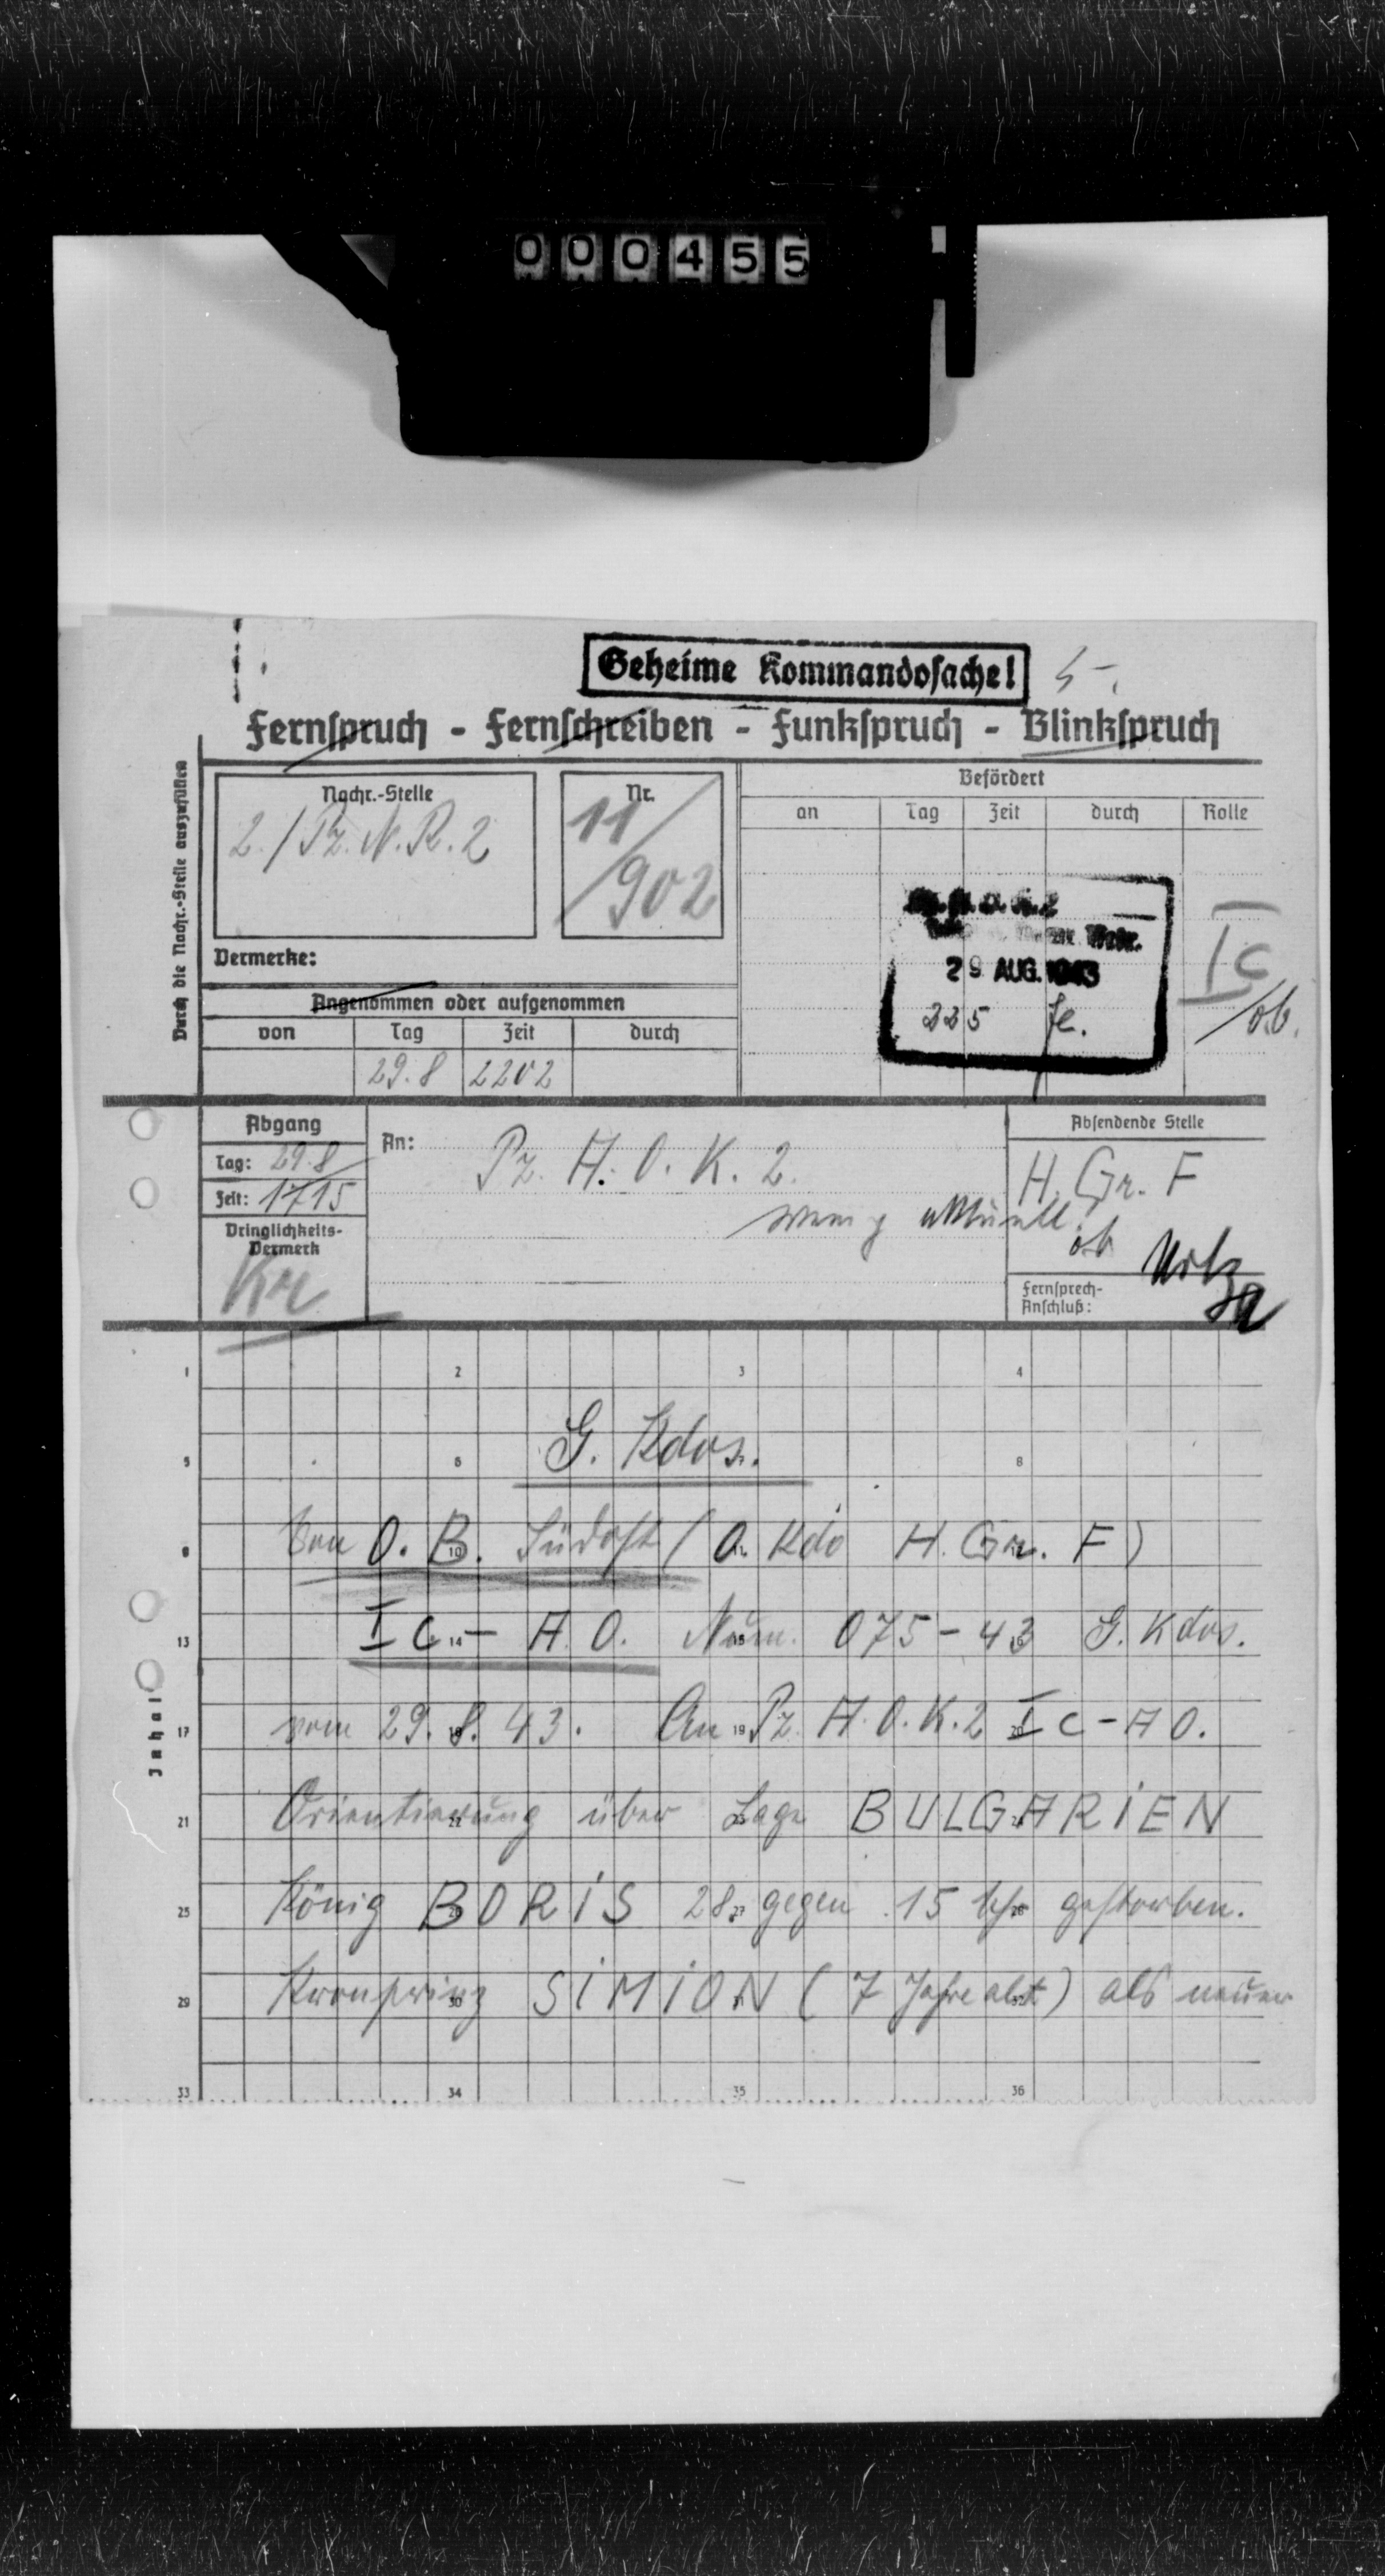 000455
Geheime Kommandosache!
Fernspruch - Fernschreiben - Funkspruch - Blinkspruch
Durch die Nachr.-Stelle auszufüllen
Nachr.-Stelle
2./Pz.N.R.2
Nr.
11/902
Befördert
an Tag Zeit durch Rolle
29 AUG. 1943
Ic
/ob.
Vermerke:
Angenommen oder aufgenommen
von Tag Zeit durch
29.8 2202
Abgang
Tag: 29.8
Zeit: 1715
Dringlichkeits-
Vermerk
Kr
An: Pz. A.O.K.2.
Absendende Stelle
H. Gr. F
Fernsprech-
Anschluß:
Inhalt
G. Kdos.
Von O.B. Südost (O. Kdo H. Gr. F)
Ic - A.O. Num. 075-43 G.Kdos.
vom 29.8.43. An Pz. A.O.K.2 Ic-AO.
Orientierung über Lage BULGARIEN
König BORIS 28. gegen 15 Uhr gestorben.
Kronprinz SIMION (7 Jahre alt) als neuer